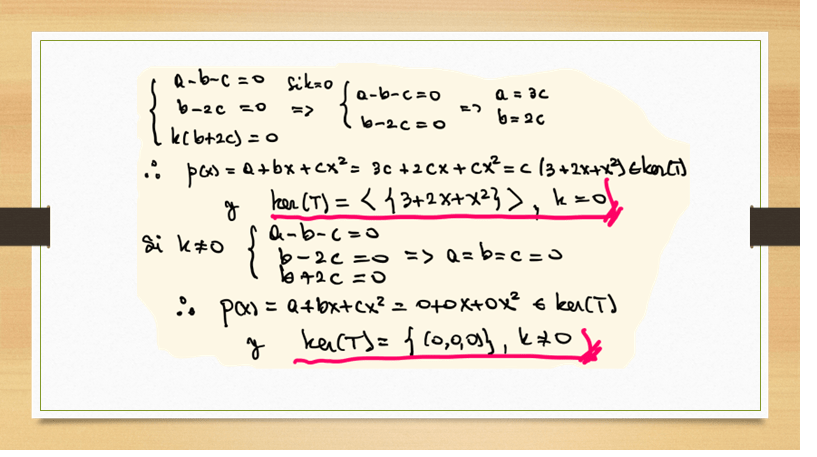 a-b-c=0 Si k=0 a-b-c=0 => a=3c
b-2c=0 => b-2c=0 b=2c
k(b+2c)=0
∴ p(x)=a+bx+cx²=3c+2cx+cx²=c(3+2x+x²)∈ker(T)
y ker(T)=<{3+2x+x²}>, k=0
Si k≠0 a-b-c=0
b-2c=0 => a=b=c=0
b+2c=0
∴ p(x)=a+bx+cx²=0+0x+0x² ∈ ker(T)
y ker(T)={(0,0,0)}, k≠0